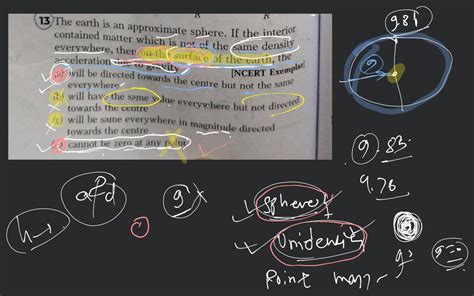 13 The earth is an approximate sphere. If the interior
contained matter which is not of the same density
everywhere, then on the surface of the earth, the
acceleration due to gravity [NCERT Exemplar]
(a) will be directed towards the centre but not the same
everywhere
(b) will have the same value everywhere but not directed
towards the centre
(c) will be same everywhere in magnitude directed
towards the centre
(d) cannot be zero at any point
9.81
g
9.83
9.76
h→
d
g
sphere
Unidensity
Point mass
g
g=0